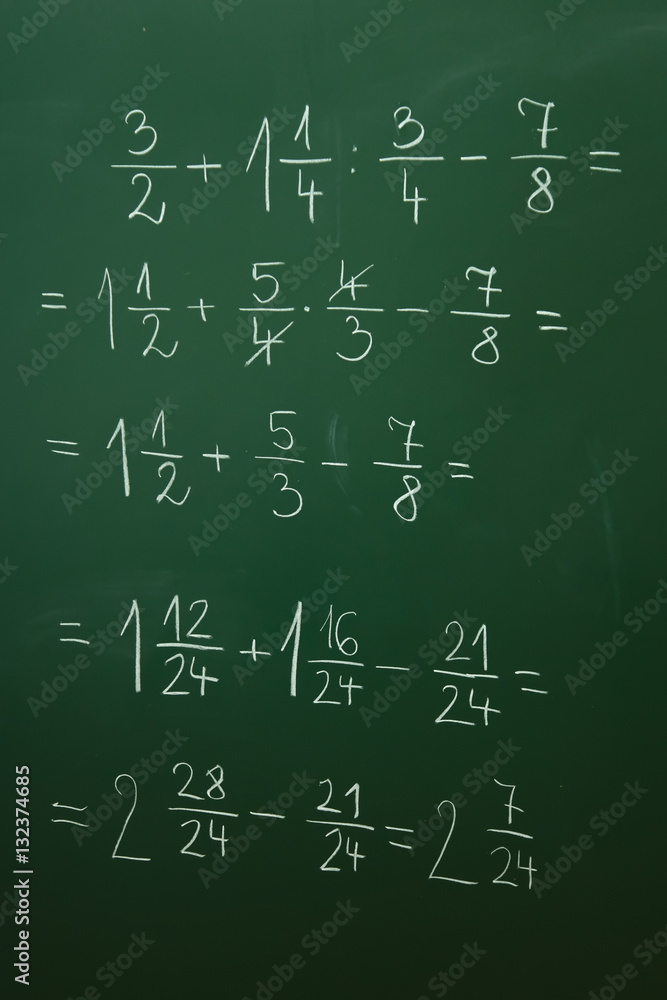 3/2 + 1 1/4 : 3/4 − 7/8 =
= 1 1/2 + 5/4 · 4/3 − 7/8 =
= 1 1/2 + 5/3 − 7/8 =
= 1 12/24 + 1 16/24 − 21/24 =
= 2 28/24 − 21/24 = 2 7/24
Adobe Stock | #132374685